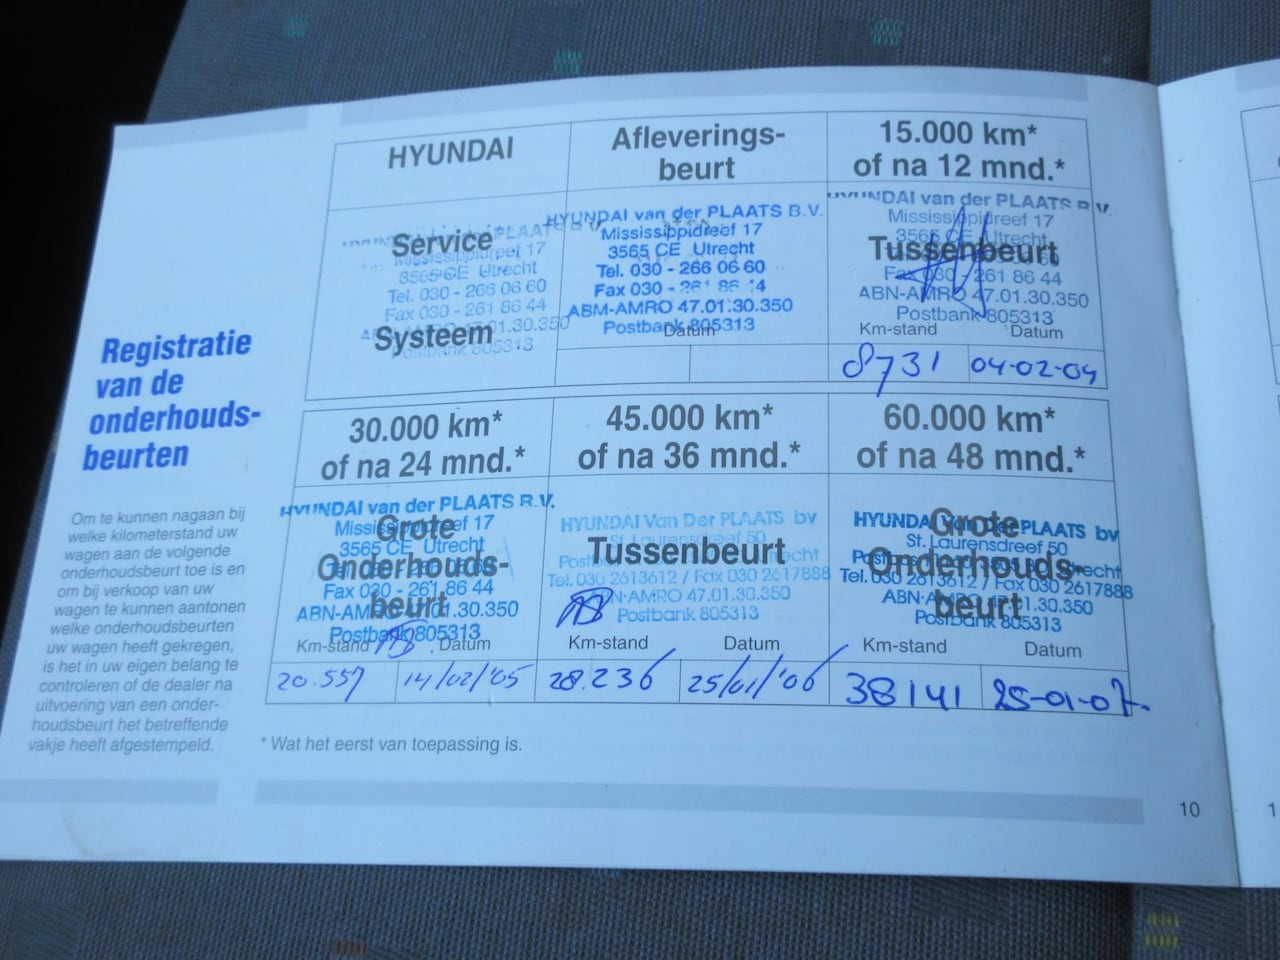 Registratie
van de
onderhouds-
beurten
Om te kunnen nagaan bij
welke kilometerstand uw
wagen aan de volgende
onderhoudsbeurt toe is en
om bij verkoop van uw
wagen te kunnen aantonen
welke onderhoudsbeurten
uw wagen heeft gekregen,
is het in uw eigen belang te
controleren of de dealer na
uitvoering van een onder-
houdsbeurt het betreffende
vakje heeft afgestempeld.
HYUNDAI
Service
Systeem
Mississippidreef 17
3565 CE Utrecht
Tel. 030 - 266 06 60
Fax 030 - 261 86 44
ABN-AMRO 47.01.30.350
Postbank 805313
Afleverings-
beurt
HYUNDAI van der PLAATS B.V.
Mississippidreef 17
3565 CE Utrecht
Tel. 030 - 266 06 60
Fax 030 - 261 86 44
ABM-AMRO 47.01.30.350
Postbank 805313
Datum
15.000 km*
of na 12 mnd.*
HYUNDAI van der PLAATS B.V.
Mississippidreef 17
3565 CE Utrecht
Tussenbeurt
Fax 030 - 261 86 44
ABN-AMRO 47.01.30.350
Postbank 805313
Km-stand Datum
8731 04-02-04
30.000 km*
of na 24 mnd.*
HYUNDAI van der PLAATS B.V.
Mississippidreef 17
Grote
3565 CE Utrecht
Onderhouds-
Fax 030 - 261 86 44
beurt
ABN-AMRO 47.01.30.350
Postbank 805313
Km-stand Datum
20.557 14/02/'05
45.000 km*
of na 36 mnd.*
HYUNDAI Van Der PLAATS bv
St. Laurensdreef 50
Tussenbeurt
Tel. 030 2613612 / Fax 030 2617888
ABN-AMRO 47.01.30.350
Postbank 805313
Km-stand Datum
28.236 25/01/'06
60.000 km*
of na 48 mnd.*
HYUNDAI Van Der PLAATS bv
Grote
St. Laurensdreef 50
Onderhouds-
Tel. 030 2613612 / Fax 030 2617888
ABN-AMRO 47.01.30.350
beurt
Postbank 805313
Km-stand Datum
38141 25-01-07
* Wat het eerst van toepassing is.
10